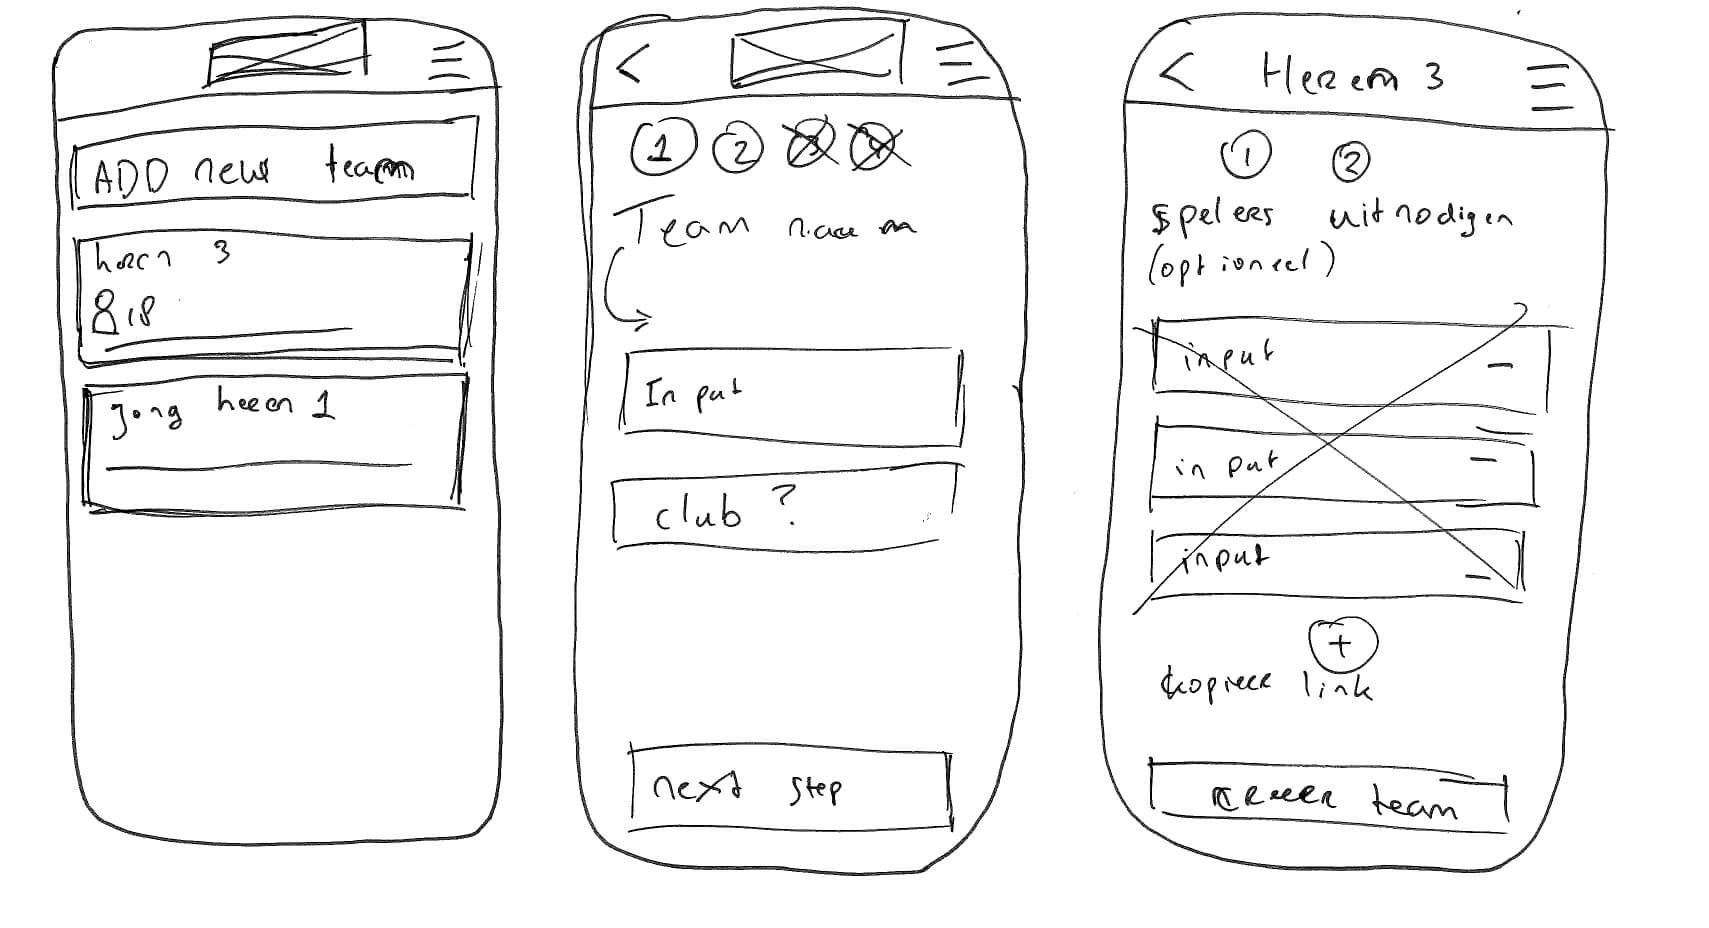 ADD new team
heren 3
8 18
Jong heren 1
<
1 2 3 4
Team naam
Input
club ?
next step
< Heren 3
1 2
spelers uitnodigen
(optioneel)
input -
input -
input -
+
kopieer link
team